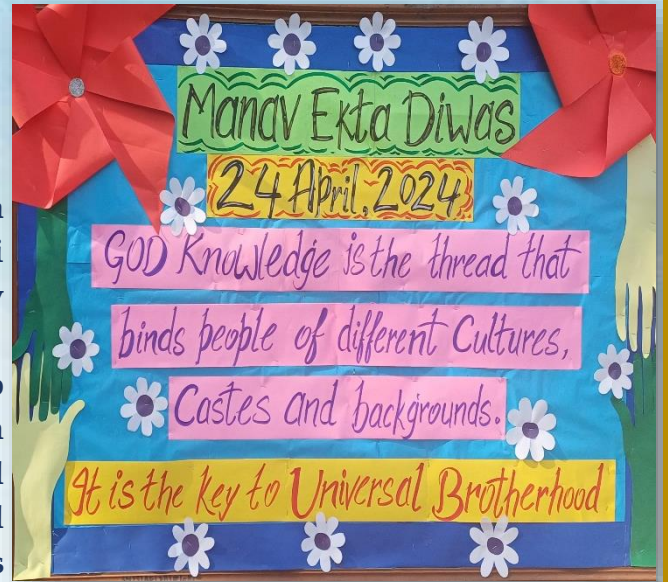 Manav Ekta Diwas
24 April, 2024
GOD Knowledge is the thread that
binds people of different Cultures,
Castes and backgrounds.
It is the key to Universal Brotherhood